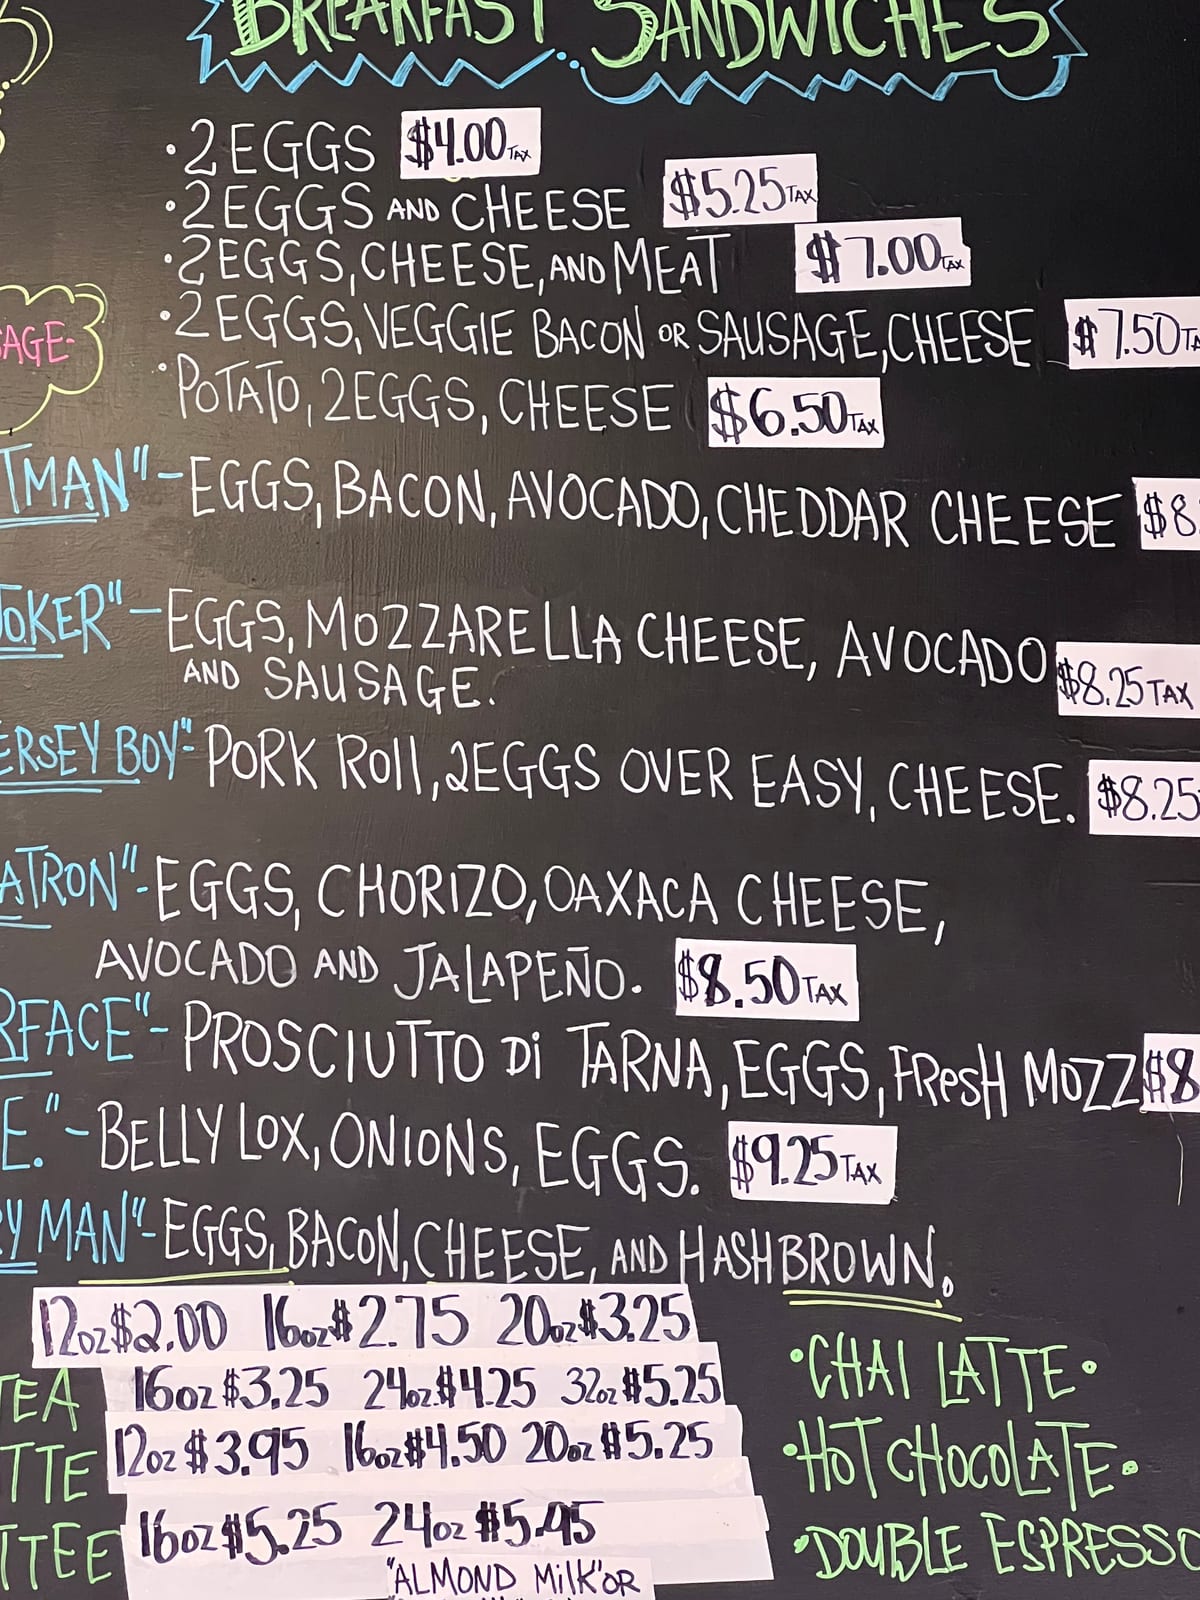 BREAKFAST SANDWICHES
•2 EGGS $4.00 TAX
•2 EGGS AND CHEESE $5.25 TAX
•2 EGGS, CHEESE, AND MEAT $7.00 TAX
•2 EGGS, VEGGIE BACON OR SAUSAGE, CHEESE $7.50 TA
AGE-
•POTATO, 2 EGGS, CHEESE $6.50 TAX
TMAN"-EGGS, BACON, AVOCADO, CHEDDAR CHEESE $8.
JOKER"-EGGS, MOZZARELLA CHEESE, AVOCADO $8.25 TAX
AND SAUSAGE.
ERSEY BOY"- PORK ROll, 2EGGS OVER EASY, CHEESE. $8.25
ATRON"-EGGS, CHORIZO, OAXACA CHEESE,
AVOCADO AND JALAPEÑO. $8.50 TAX
RFACE"- PROSCIUTTO Di TARNA, EGGS, FResH MOZZ $8
E."- BELLY LOX, ONIONS, EGGS. $9.25 TAX
Y MAN"-EGGS, BACON, CHEESE, AND HASHBROWN.
12oz $2.00 16oz $2.75 20oz $3.25
TEA 16oz $3.25 24oz $4.25 32oz $5.25 •CHAI LATTE•
TTE 12oz $3.95 16oz $4.50 20oz $5.25 •HOT CHOCOLATE•
TTEE 16oz $5.25 24oz $5.95 •DOUBLE ESPRESSO
"ALMOND MilK" OR